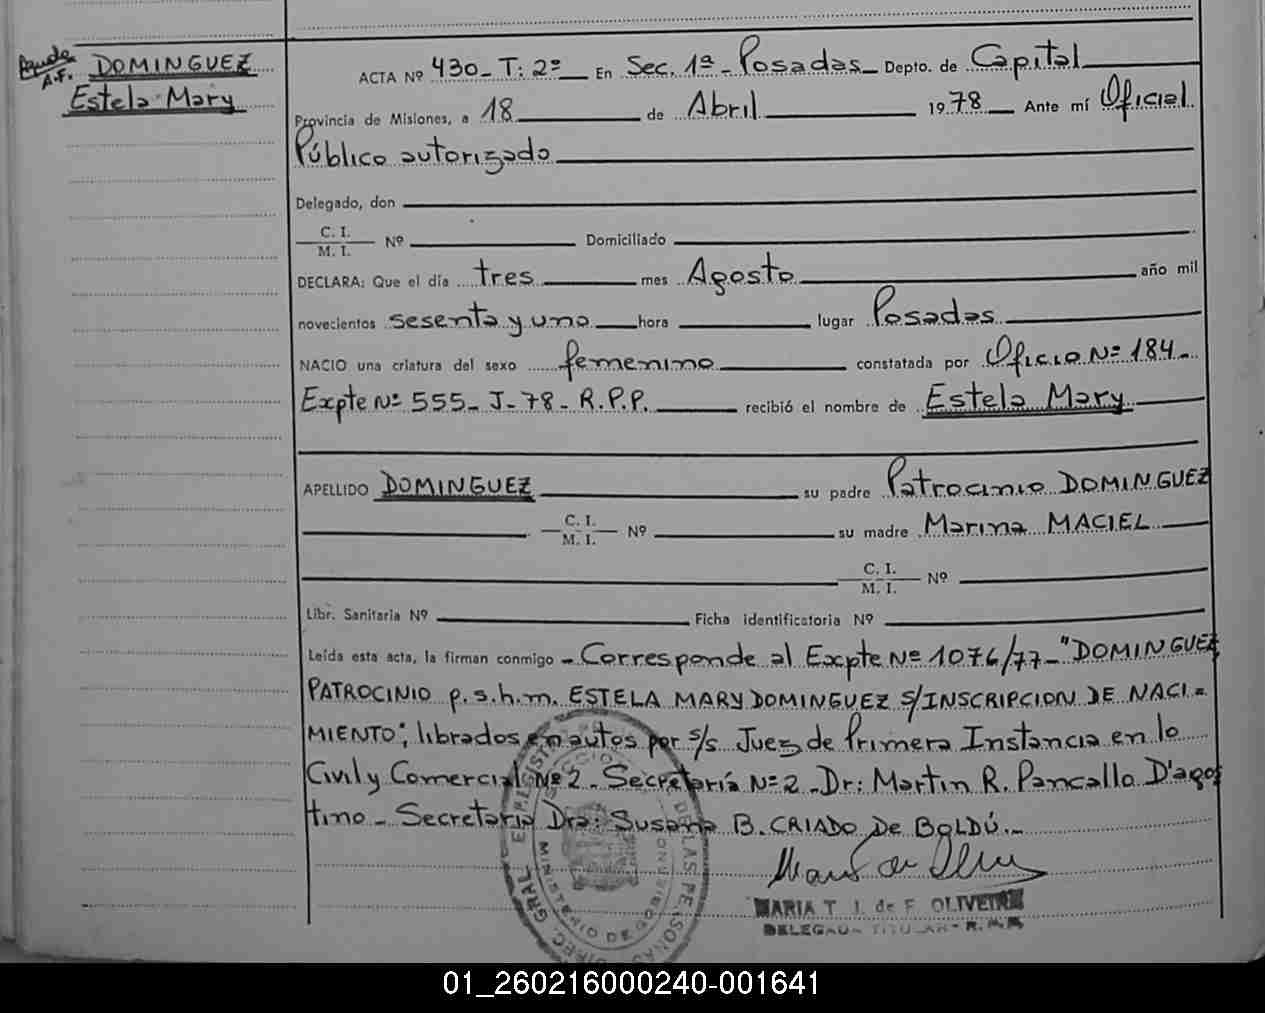 Ayudo
A.F.
DOMINGUEZ
Estela Mary
ACTA Nº 430 - T: 2º En Sec. 1ª - Posadas - Depto. de Capital
Provincia de Misiones, a 18 de Abril 1978 Ante mí Oficial
Público autorizado
Delegado, don
C. I.
M. I. Nº Domiciliado
DECLARA: Que el día tres mes Agosto año mil
novecientos sesenta y uno hora lugar Posadas
NACIO una criatura del sexo femenino constatada por Oficio Nº 184 -
Expte Nº 555 - J - 78 - R.P.P. recibió el nombre de Estela Mary
APELLIDO DOMINGUEZ su padre Patrocinio DOMINGUEZ
C. I.
M. I. Nº su madre Marina MACIEL
C. I.
M. I. Nº
Libr. Sanitaria Nº Ficha identificatoria Nº
Leída esta acta, la firman conmigo - Corresponde al Expte Nº 1076/77 - "DOMINGUEZ
PATROCINIO p.s.h.m. ESTELA MARY DOMINGUEZ S/INSCRIPCION DE NACI=
MIENTO"; librados en autos por s/s Juez de Primera Instancia en lo
Civil y Comercial Nº 2 - Secretaría Nº 2 - Dr: Martin R. Pancallo D'agos
tino - Secretaria Dra: Susana B. CRIADO DE BOLDÚ. -
DIREC. GRAL DE LAS PERSONAS
MINISTERIO DE GOBIERNO
MARIA T. J. de F. OLIVEIRA
DELEGADA TITULAR - R.P.P.
01_260216000240-001641